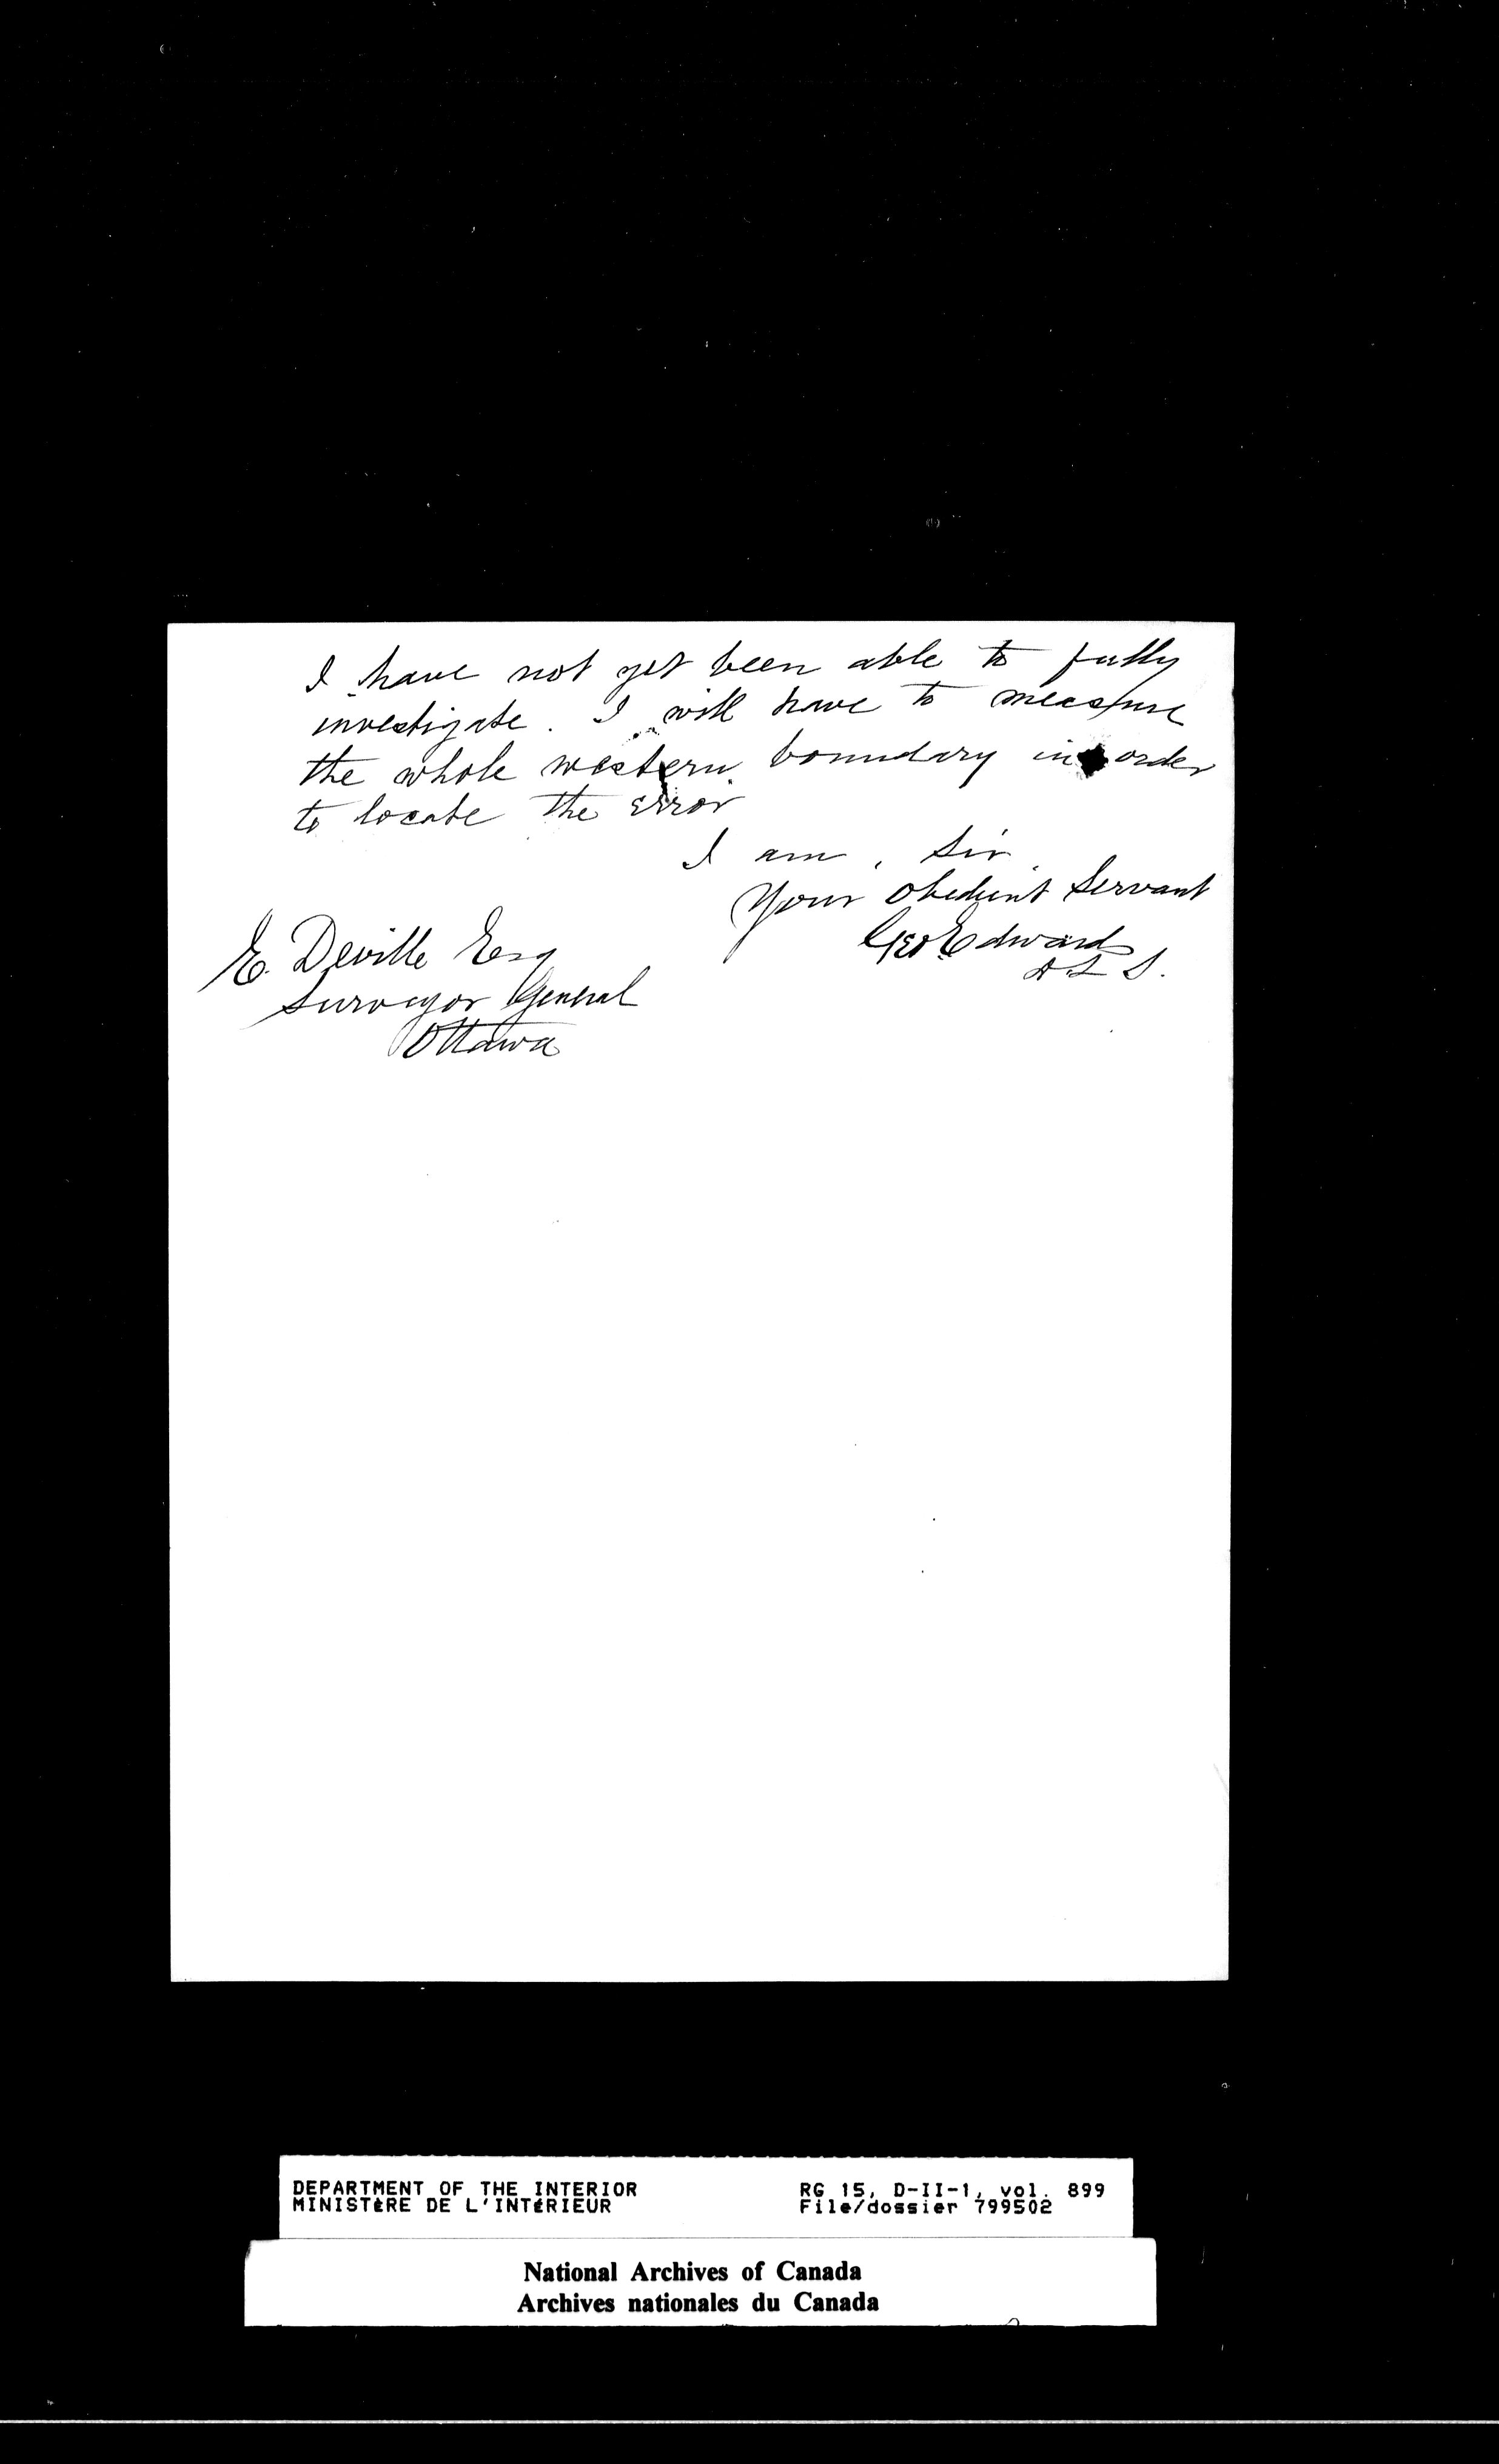 I have not yet been able to fully
investigate. I will have to measure
the whole western boundary in order
to locate the error
I am, Sir,
Your Obedient Servant
Geo Edwards
D L S.
E. Deville Esq
Surveyor General
Ottawa
DEPARTMENT OF THE INTERIOR
MINISTÈRE DE L'INTÉRIEUR
RG 15, D-II-1, vol. 899
File/dossier 799502
National Archives of Canada
Archives nationales du Canada